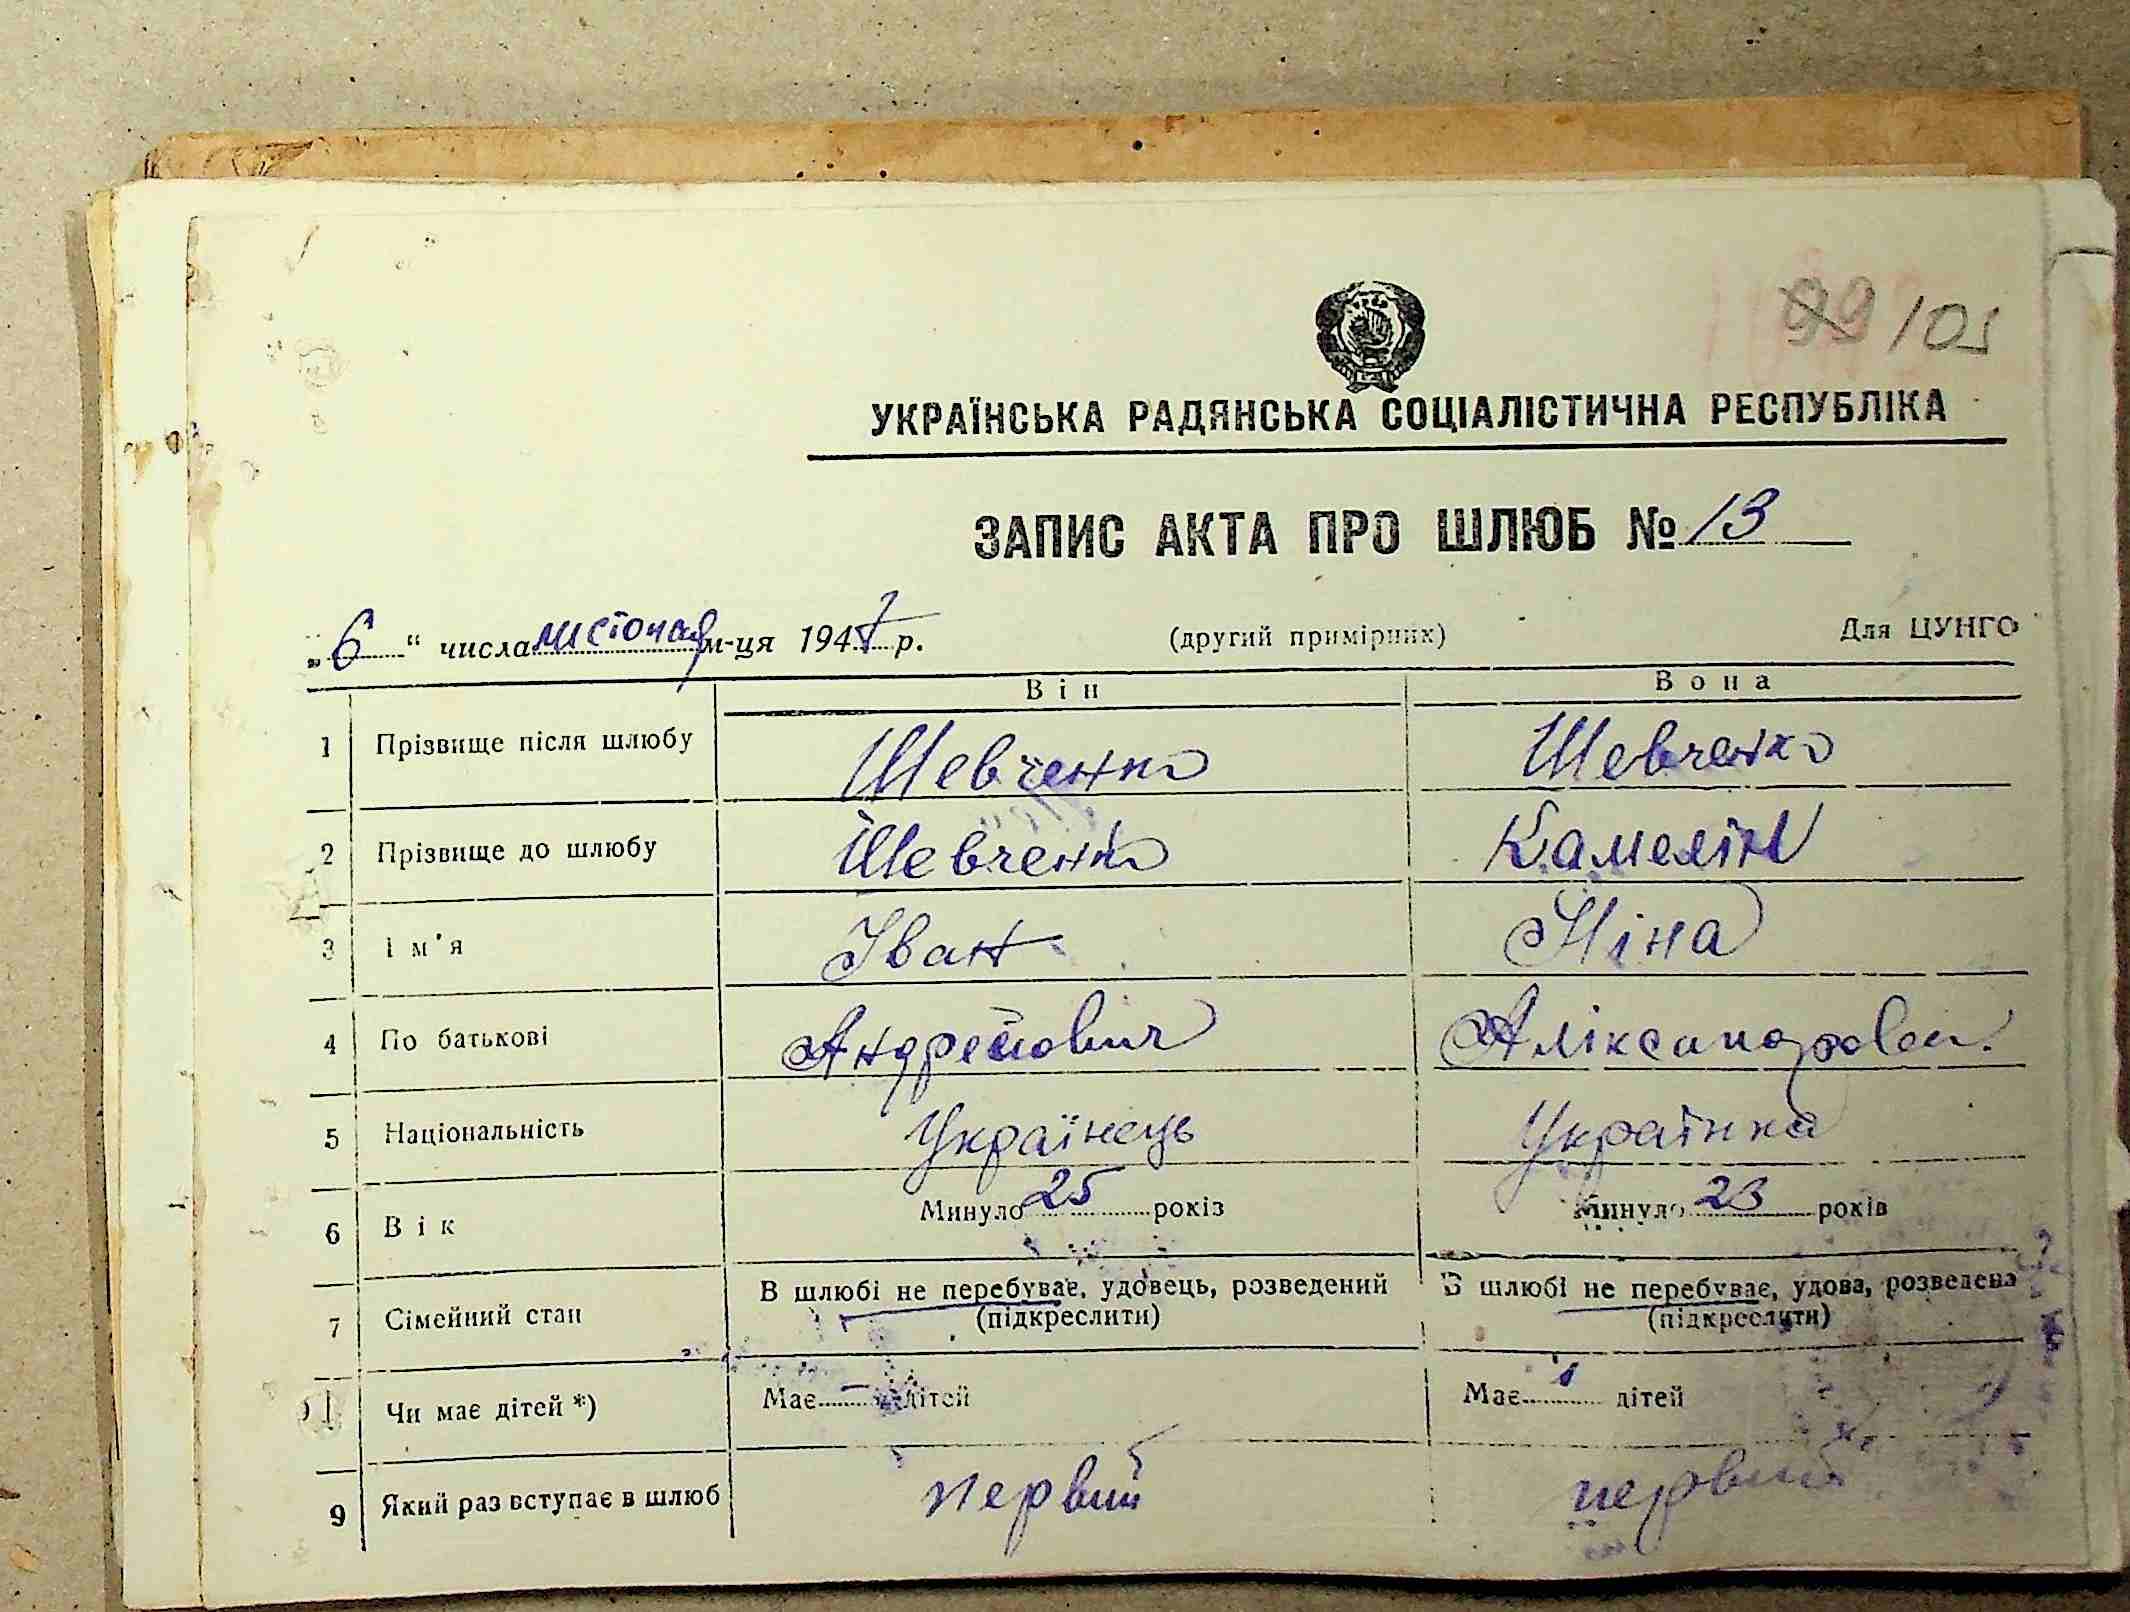 99/01
УКРАЇНСЬКА РАДЯНСЬКА СОЦІАЛІСТИЧНА РЕСПУБЛІКА
ЗАПИС АКТА ПРО ШЛЮБ № 13
„6“ числа листопад м-ця 1947 р. (другий примірник) Для ЦУНГО
Він Вона
1 Прізвище після шлюбу Шевченко Шевченко
2 Прізвище до шлюбу Шевченко Камелін
3 Ім'я Іван Ніна
4 По батькові Андрейович Аліксандровн.
5 Національність Українець Українка
6 Вік Минуло 25 років Минуло 23 років
7 Сімейний стан В шлюбі не перебуває, удовець, розведений В шлюбі не перебуває, удова, розведена
(підкреслити) (підкреслити)
Чи має дітей *) Має — дітей Має 1 дітей
9 Який раз вступає в шлюб первий первий